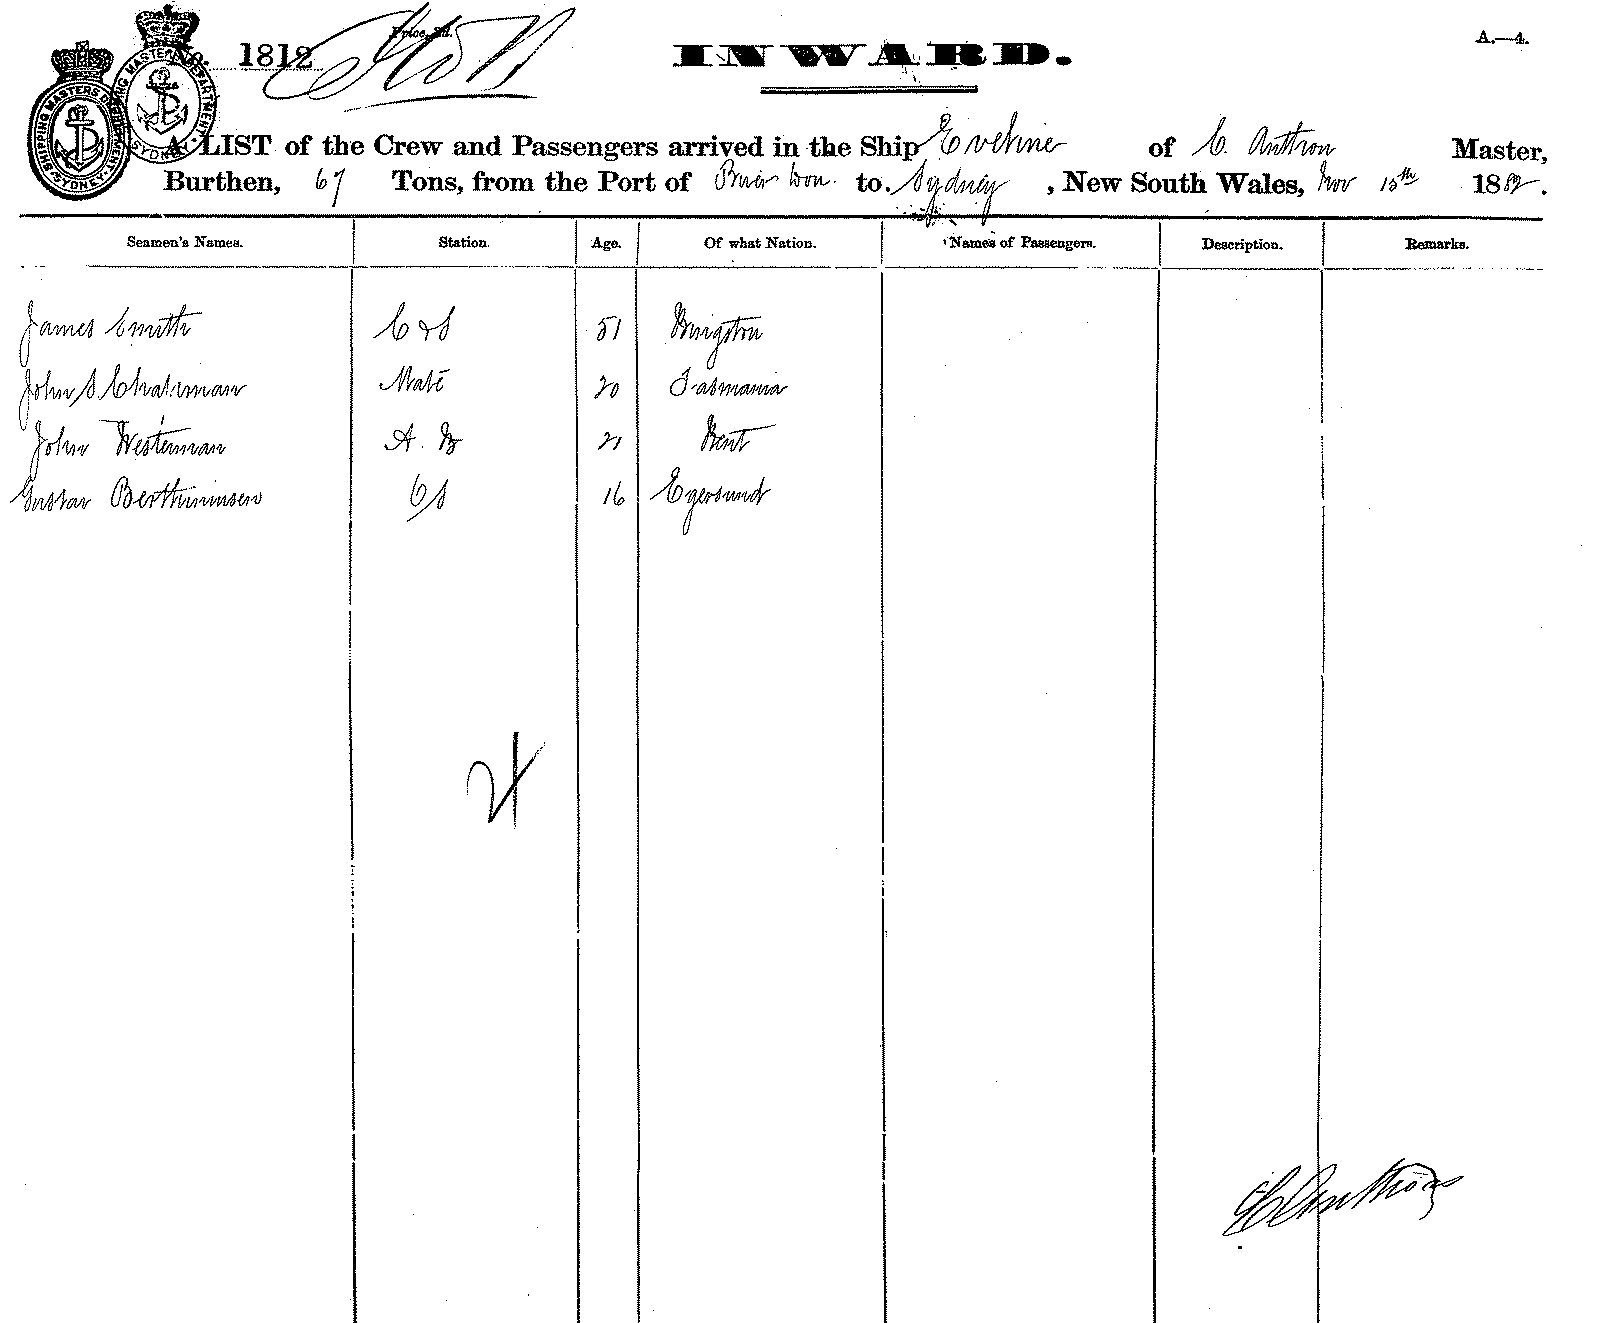 1812
INWARD.
A.—4.
A LIST of the Crew and Passengers arrived in the Ship Eveline of C. Anthon Master,
Burthen, 67 Tons, from the Port of to Sydney, New South Wales, Nov 15th 1882.
Seamen's Names. Station. Age. Of what Nation. Names of Passengers. Description. Remarks.
James Smith C & S 51 Kingston
John S Chatman Mate 20 Tasmania
John Westerman A. B 21 Kent
Gustav OS 16 Egersund
SHIPPING MASTERS DEPARTMENT SYDNEY
SHIPPING MASTERS DEPARTMENT SYDNEY